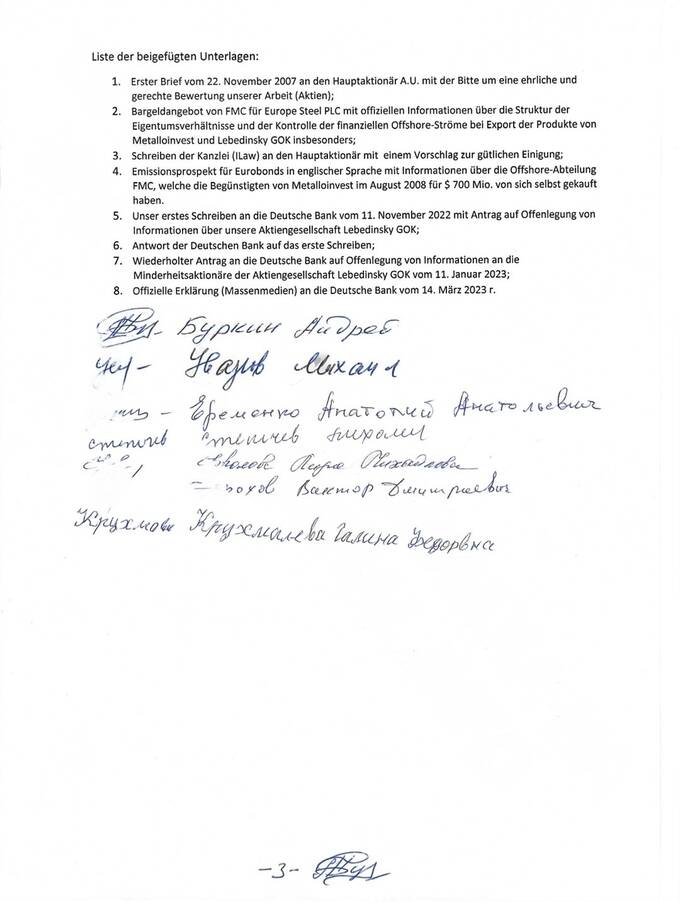 Liste der beigefügten Unterlagen:
1. Erster Brief vom 22. November 2007 an den Hauptaktionär A.U. mit der Bitte um eine ehrliche und
gerechte Bewertung unserer Arbeit (Aktien);
2. Bargeldangebot von FMC für Europe Steel PLC mit offiziellen Informationen über die Struktur der
Eigentumsverhältnisse und der Kontrolle der finanziellen Offshore-Ströme bei Export der Produkte von
Metalloinvest und Lebedinsky GOK insbesonders;
3. Schreiben der Kanzlei (ILaw) an den Hauptaktionär mit einem Vorschlag zur gütlichen Einigung;
4. Emissionsprospekt für Eurobonds in englischer Sprache mit Informationen über die Offshore-Abteilung
FMC, welche die Begünstigten von Metalloinvest im August 2008 für $ 700 Mio. von sich selbst gekauft
haben.
5. Unser erstes Schreiben an die Deutsche Bank vom 11. November 2022 mit Antrag auf Offenlegung von
Informationen über unsere Aktiengesellschaft Lebedinsky GOK;
6. Antwort der Deutschen Bank auf das erste Schreiben;
7. Wiederholter Antrag an die Deutsche Bank auf Offenlegung von Informationen an die
Minderheitsaktionäre der Aktiengesellschaft Lebedinsky GOK vom 11. Januar 2023;
8. Offizielle Erklärung (Massenmedien) an die Deutsche Bank vom 14. März 2023 r.
Буркин Андрей
Михаил
Еременко Анатолий Анатольевич
Виктор Дмитриевич
Крухмалева Галина Федоровна
-3-